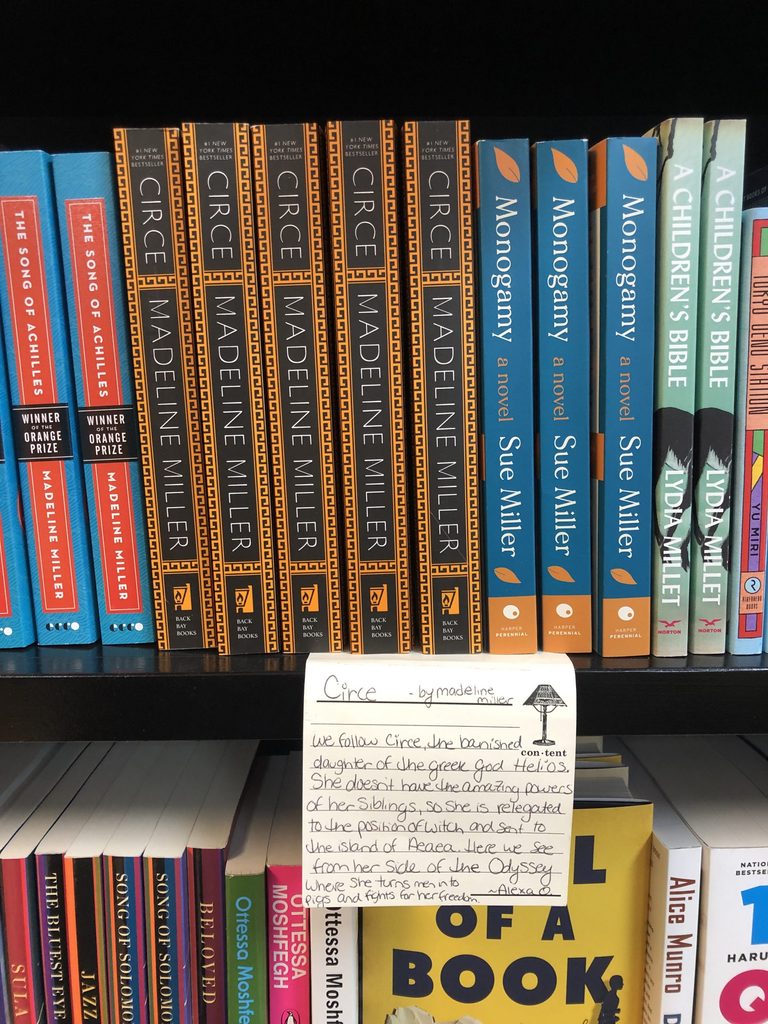 THE SONG OF ACHILLES
WINNER
OF THE
ORANGE
PRIZE
MADELINE MILLER
ecco
THE SONG OF ACHILLES
WINNER
OF THE
ORANGE
PRIZE
MADELINE MILLER
#1 NEW
YORK TIMES
BESTSELLER
CIRCE
MADELINE MILLER
BACK
BAY
BOOKS
#1 NEW
YORK TIMES
BESTSELLER
CIRCE
MADELINE MILLER
BACK
BAY
BOOKS
#1 NEW
YORK TIMES
BESTSELLER
CIRCE
MADELINE MILLER
BACK
BAY
BOOKS
#1 NEW
YORK TIMES
BESTSELLER
CIRCE
MADELINE MILLER
BACK
BAY
BOOKS
#1 NEW
YORK TIMES
BESTSELLER
CIRCE
MADELINE MILLER
BACK
BAY
BOOKS
Monogamy a novel Sue Miller
HARPER
PERENNIAL
Monogamy a novel Sue Miller
HARPER
PERENNIAL
Monogamy a novel Sue Miller
HARPER
PERENNIAL
A CHILDREN'S BIBLE
LYDIA MILLET
NORTON
A CHILDREN'S BIBLE
LYDIA MILLET
NORTON
TOKYO UENO STATION
YU MIRI
RIVERHEAD
BOOKS
Circe - by madeline
miller
con·tent
We follow Circe, the banished
daughter of the greek god Helios.
She doesn't have the amazing powers
of her Siblings, so she is relegated
to the position of witch and sent to
the island of Aeaea. Here we see
from her side of the Odyssey
where she turns men into
pigs and fights for her freedom.
~Alexa O.
SULA
THE BLUEST EYE
JAZZ
SONG OF SOLOMO
SONG OF SOLOMO
BELOVED
Ottessa Moshfe
OTTESSA
MOSHFEGH
Ottessa Moshf
L
OF A
BOOK
Alice Munro
NATION
BESTSE
1
HARU
Q